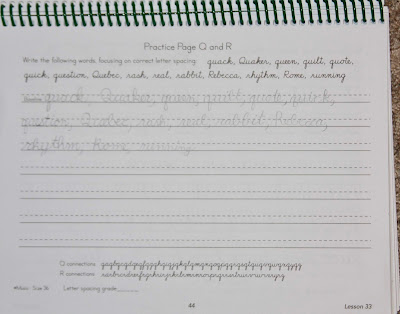 Practice Page Q and R
Write the following words, focusing on correct letter spacing: quack, Quaker, queen, quilt, quote,
quick, question, Quebec, rash, real, rabbit, Rebecca, rhythm, Rome, running
quack, Quaker, queen, quilt, quote, quick,
question, Quebec, rash, real, rabbit, Rebecca,
rhythm, Rome, running
Q connections:
R connections:
Letter spacing grade
44
Lesson 33